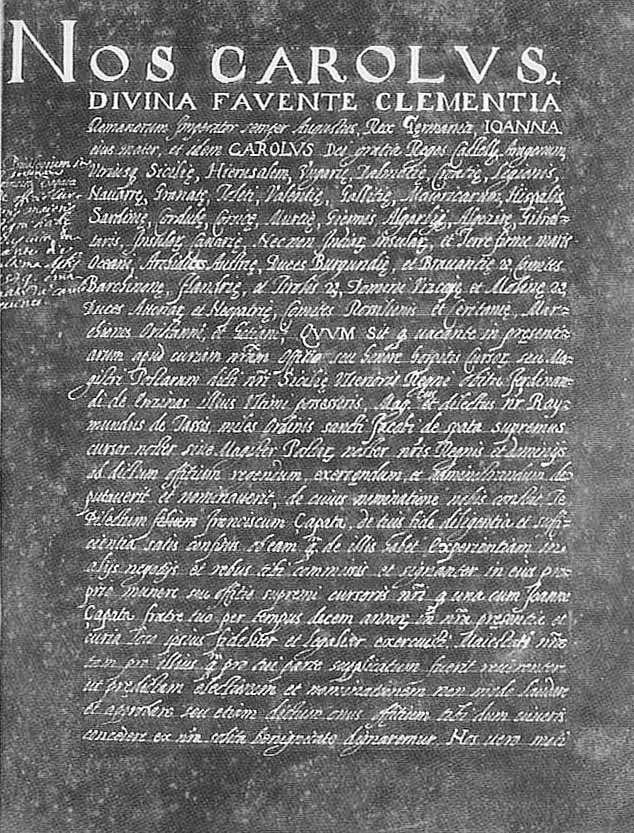 NOS CAROLVS
DIVINA FAVENTE CLEMENTIA
Romanorum Imperator semper Augustus, Rex Germaniæ, IOANNA
eius mater, et idem CAROLVS Dei gratia Reges Castellę, Aragonum,
Vtriusq; Sicilię, Hierusalem, Vngarię, Dalmatię, Croatię, Legionis,
Nauarrę, Granatę, Toleti, Valentię, Gallitię, Maioricarum, Hispalis,
Sardinię, Cordubę, Corsicę, Murtię, Giennis, Algarbij, Algezirę, Gibral-
taris, Insularũ Canarię, Necnon Indiarũ Insularũ, et Terre firme maris
Oceani, Archiduces Austrię, Duces Burgundię, et Brauantię &, Comites
Barchinonę, Flandrię, et Tirolis &, Domini Vizcayę et Molinę &
Duces Athenarũ et Neopatrię, Comites Rossilionis et Ceritanię, Mar-
chiones Oristanni, et Gotiani, QVVM Sit q̃ uacante in presenti-
arum apud curiam nr̃am offitio, seu honore hospitis Cursorũ, seu Ma-
gistri Postarum dicti nr̃i Sicilię Vlterioris Regni obitu Ferdinan-
di de Enzinas illius Vltimi possessoris, Mag.cus et dilectus nr̃ Ray-
mundus de Tassis, miles ordinis sancti Jacobi de spata supremus
cursor noster siue Magister Postarũ, noster nr̃is Regnis et dominijs
ad dictum offitium regendum, exercendum, et administrandum de-
putauerit et nominauerit, de cuius nominatione nobis constat, Te
Dilectum fidelium franciscum Capata, de cuius fide diligentia et suffi-
cientia satis confisis ob eam q̃ de illis habet Experientiam in
alijs negotijs et rebus tibi commissis et signanter in eius pro-
prio munere seu offitio supremi cursoris nr̃i q̃ una cum Joanne
Capata fratre tuo per tempus decem annorũ in nr̃a presentia et
curia loco ipsius fideliter et legaliter exercuisti. Maiestati nr̃e
tam pro illius q̃ pro tui parte supplicatum fuerit reuerenter
ut predictam electionem et nominationem non modo laudare
et aprobare seu etiam dictum onus offitium tibi dum uixeris
concedere ex nr̃a solita benignitate dignaremur. Nos uero